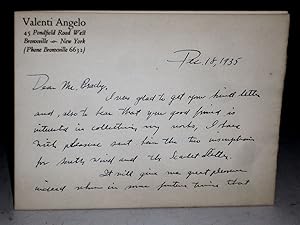 Valenti Angelo
45 Pondfield Road West
Bronxville — New York
(Phone Bronxville 6632)
Dec. 18, 1935
Dear Mr. Brady,
I was glad to get your kind letter
and, also to hear that your good friend is
interested in collecting my works, I have
with pleasure sent him the two inscriptions
for Song Word and the Scarlet Letter.
It will give me great pleasure
indeed when in some future time that